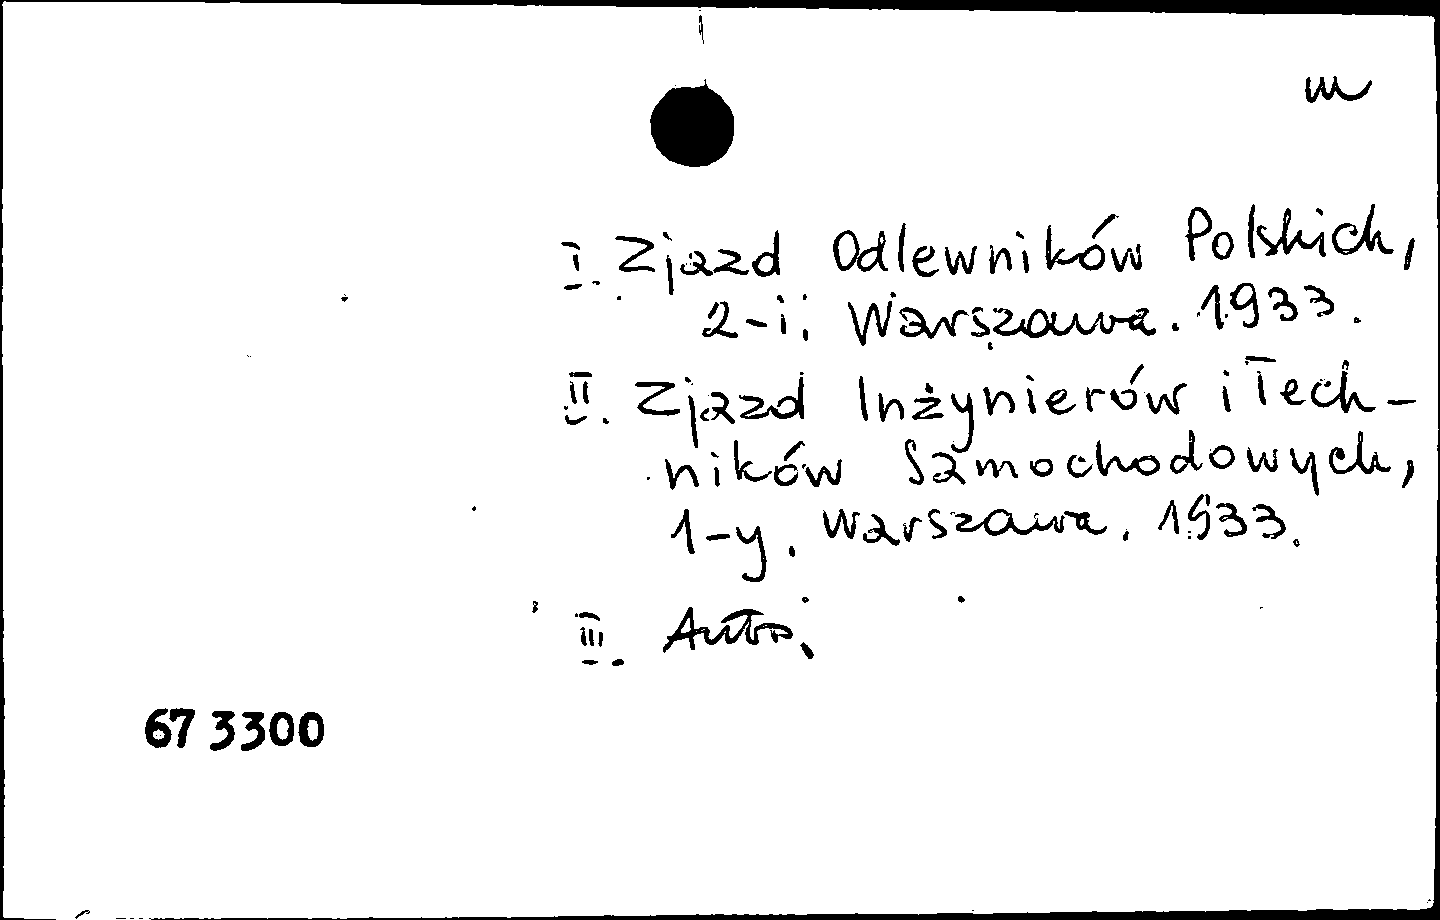 m
I. Zjazd Odlewników Polskich,
2-i. Warszawa. 1933.
II. Zjazd Inżynierów i Tech-
ników Samochodowych,
1-y. Warszawa. 1933.
III. Auto.
67 3300